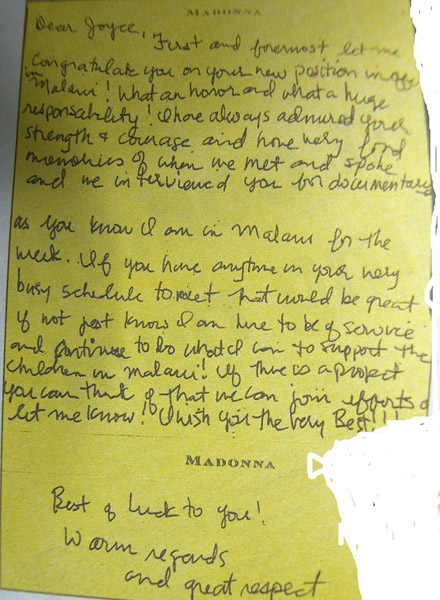 MADONNA
Dear Joyce,
First and foremost let me
Congratulate you on your new position in
in Malawi! What an honor and what a huge
responsability! I have always admired your
strength & courage and have very fond
memories of when we met and spoke
and we interviewed you for documentary
as you know I am in Malawi for the
week. If you have anytime in your very
busy schedule to meet that would be great
if not just know I am here to be of service
and continue to do what I can to support the
children in Malawi! If there is a project
you can think of that we can join efforts
let me know! I wish you the very Best!!!
MADONNA
Best of luck to you!
Warm regards
and great respect